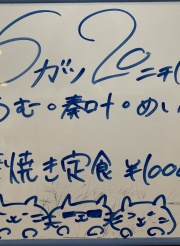 5ガツ20ニチ
む・奏叶・めい
焼き定食 ¥1000